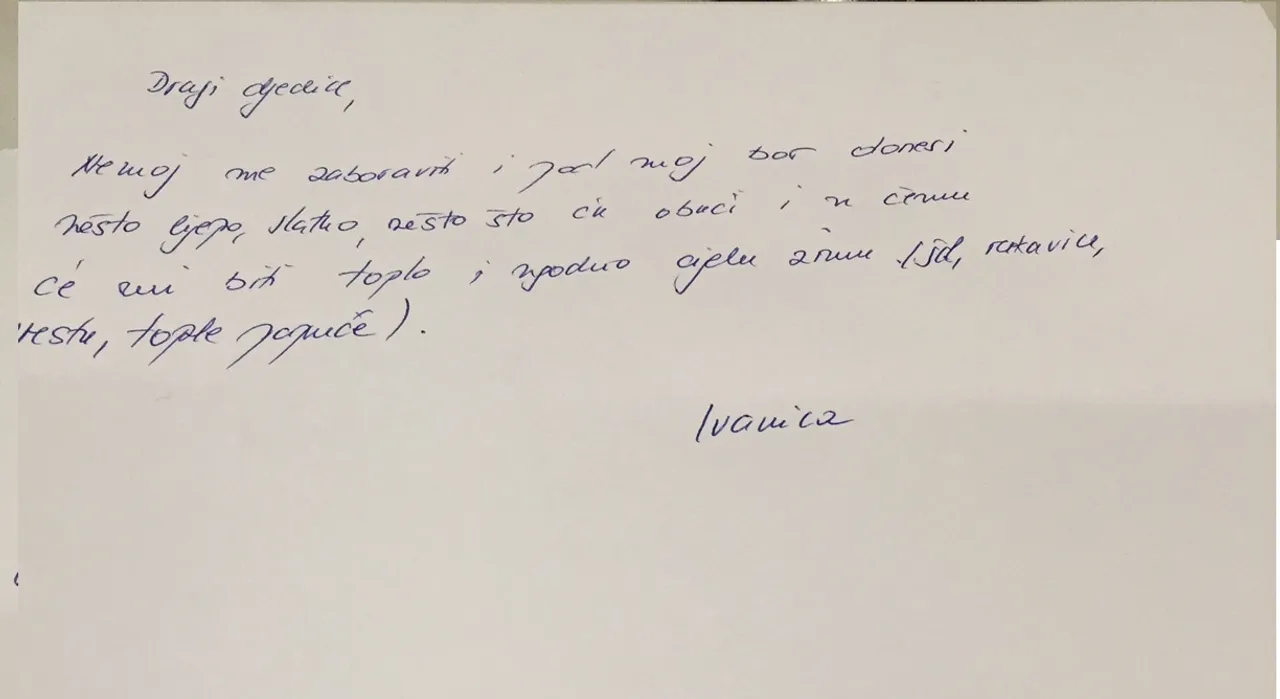 Dragi djedice,
Nemoj me zaboraviti i pod moj bor donesi
nešto lijepo, slatko, nešto što ću obući i u čemu
će mi biti toplo i ugodno cijelu zimu (šal, rukavice,
vestu, tople papuče).
Ivanica